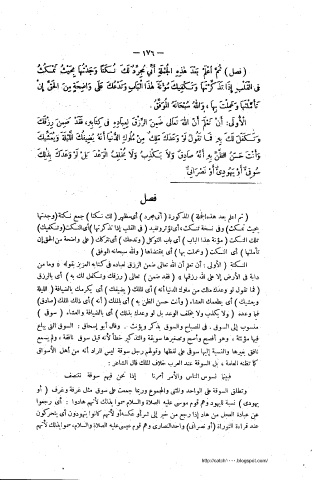 — ١٧٦ —
( فصل ) ثم اعلم بعد هذه الجملة أني مجرد لك نكتا وجدتها بحيث تمسكت
في القلب إذا تذكرتها وتكفيك مؤنة هذا الباب وتدلك على واضحة من الحق إن
تأملتها وعملت بها ، والله سبحانه الموفق .
الأولى : أن تعلم أن الله تعالى ضمن الرزق لعباده في كتابه ، فقد ضمن رزقك
وتكفل لك به فما تقول لو وعدك ملك من ملوك الدنيا أنه يضيفك الليلة ويعشيك
وأنت حسن الظن به أنه صادق ولا يكذب ولا يخلف الوعد بل لو وعدك بذلك
سوقي أو يهودي أو نصراني
فصل
( ثم اعلم بعد هذه الجملة ) المذكورة ( أني مجرد ) أي مظهر ( لك نكتا ) جمع نكتة ( وجدتها
تلك النكت ( مؤنة هذا الباب ) أي باب التوكل ( وتدلك ) أي تترك ( على واضحة من الحق إن
تأملتها ) أي النكت ( وعملت بها ) أي بمقتضاها ( والله سبحانه الموفق )
النكتة ( الأولى : أن تعلم أن الله تعالى ضمن الرزق لعباده في كتابه العزيز بقوله « وما من
دابة في الأرض إلا على الله رزقها » ( فقد ضمن ) تعالى ( رزقك وتكفل لك به ) أي بالرزق
( فما تقول لو وعدك ملك من ملوك الدنيا أنه ) أي ذلك ( يضيفك ) أي يكرمك بالضيافة ( الليلة
ويعشيك ) أي يطعمك العشاء ( وأنت حسن الظن به ) أي بالملك ( أنه ) أي ذلك الملك ( صادق )
فيما وعده ( ولا يكذب ولا يخلف الوعد بل لو وعدك بذلك ) أي بالضيافة والعشاء ( سوقي )
منسوب إلى السوق . في المصباح والسوق يذكر ويؤنث . وقال أبو إسحاق : السوق التي يباع
فيها مؤنثة ، وهو أفصح وأصح وتصغيرها سويقة والتذكير خطأ لأنه قيل سوق نافقة ، ولم يسمع
نافق بغيرها والنسبة إليها سوقي على لفظها وقولهم رجل سوقة ليس المراد أنه من أهل الأسواق
كما تظنه العامة ، بل السوقة عند العرب خلاف الملك قال الشاعر :
فبينا نسوس الناس والأمر أمرنا إذا نحن فيهم سوقة نتنصف
وتطلق السوقة على الواحد والمثنى والمجموع وربما جمعت على سوق مثل غرفة وغرف ( أو
يهودي ) نسبة لليهود وهم قوم موسى عليه الصلاة والسلام سموا بذلك لأنهم هادوا : أي رجعوا
عن عبادة العجل من هاد إذا رجع من خير إلى شر أو عكسه أو لأنهم كانوا يهودون أي يتحركون
عند قراءة التوراة ( أو نصراني ) واحد النصارى وهم قوم عيسى عليه الصلاة والسلام سموا بذلك لأنهم